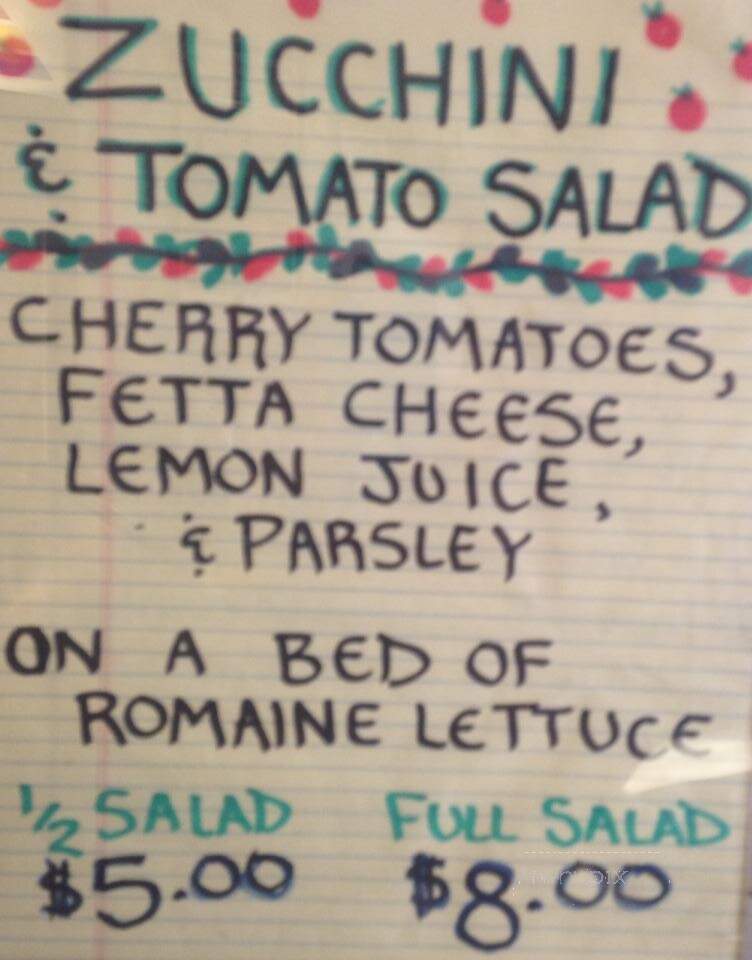 ZUCCHINI
& TOMATO SALAD
CHERRY TOMATOES,
FETTA CHEESE,
LEMON JUICE,
& PARSLEY
ON A BED OF
ROMAINE LETTUCE
1/2 SALAD FULL SALAD
$5.00 $8.00